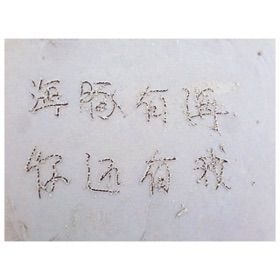 海豚有海
你还有我